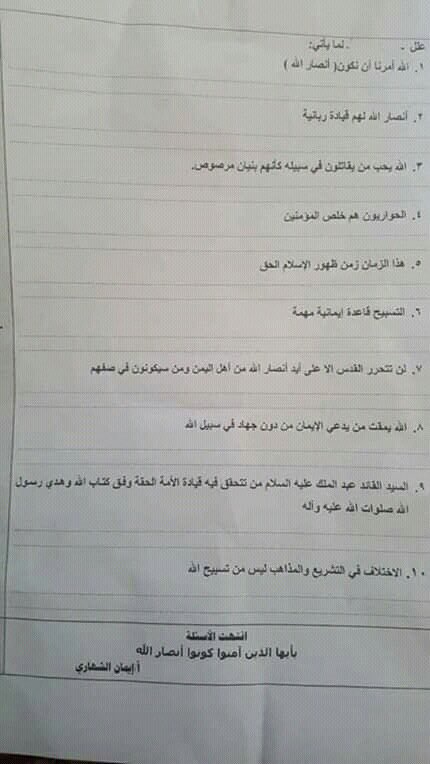 علل - لما يأتي:
١. الله أمرنا أن نكون( أنصار الله )
٢. أنصار الله لهم قيادة ربانية
٣. الله يحب من يقاتلون في سبيله كأنهم بنيان مرصوص.
٤. الحواريون هم خلص المؤمنين
٥. هذا الزمان زمن ظهور الإسلام الحق
٦. التسبيح قاعدة إيمانية مهمة
٧. لن تتحرر القدس الا على أيد أنصار الله من أهل اليمن ومن سيكونون في صفهم
٨. الله يمقت من يدعي الإيمان من دون جهاد في سبيل الله
٩. السيد القائد عبد الملك عليه السلام من تتحقق فيه قيادة الأمة الحقة وفق كتاب الله وهدي رسول
الله صلوات الله عليه وآله
١٠. الاختلاف في التشريع والمذاهب ليس من تسبيح الله
انتهت الأسئلة
يأيها الذين آمنوا كونوا أنصار الله
أ.إيمان الشهاري